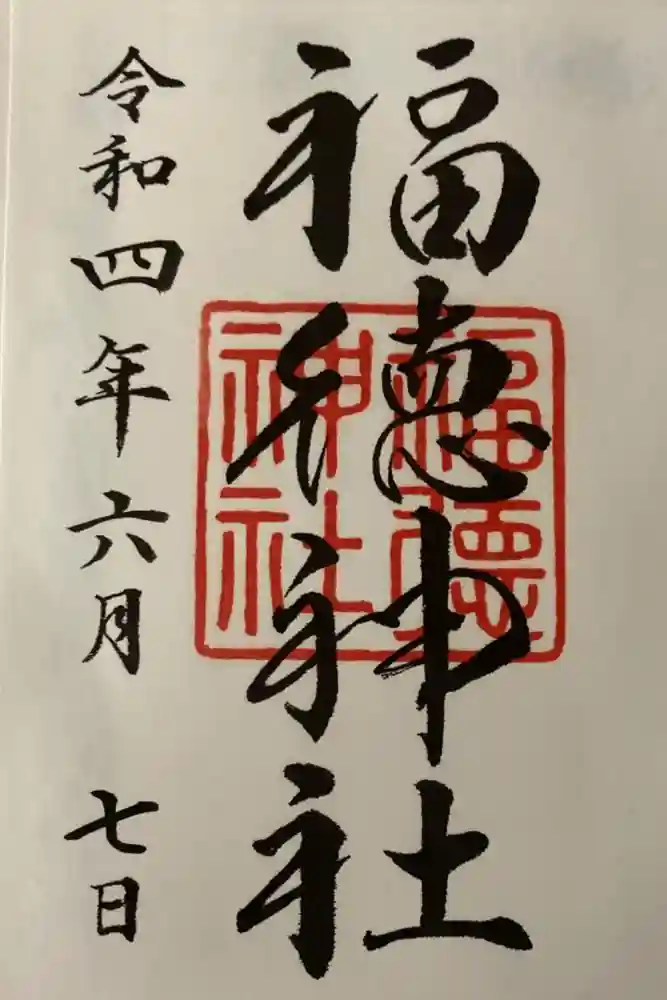 福徳神社
福徳
神社
令和四年六月 七日